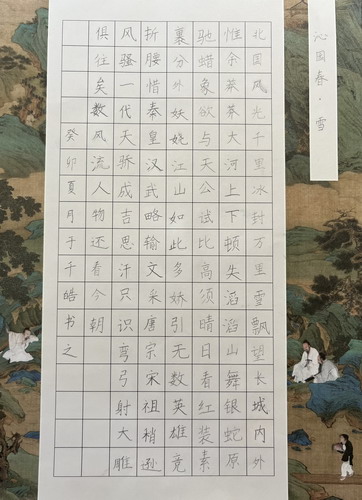 沁园春·雪
北国风光千里冰封万里雪飘望长城内外
惟余莽莽大河上下顿失滔滔山舞银蛇原
驰蜡象欲与天公试比高须晴日看红装素
裹分外妖娆江山如此多娇引无数英雄竞
折腰惜秦皇汉武略输文采唐宗宋祖稍逊
风骚一代天骄成吉思汗只识弯弓射大雕
俱往矣数风流人物还看今朝
癸卯夏月于千皓书之